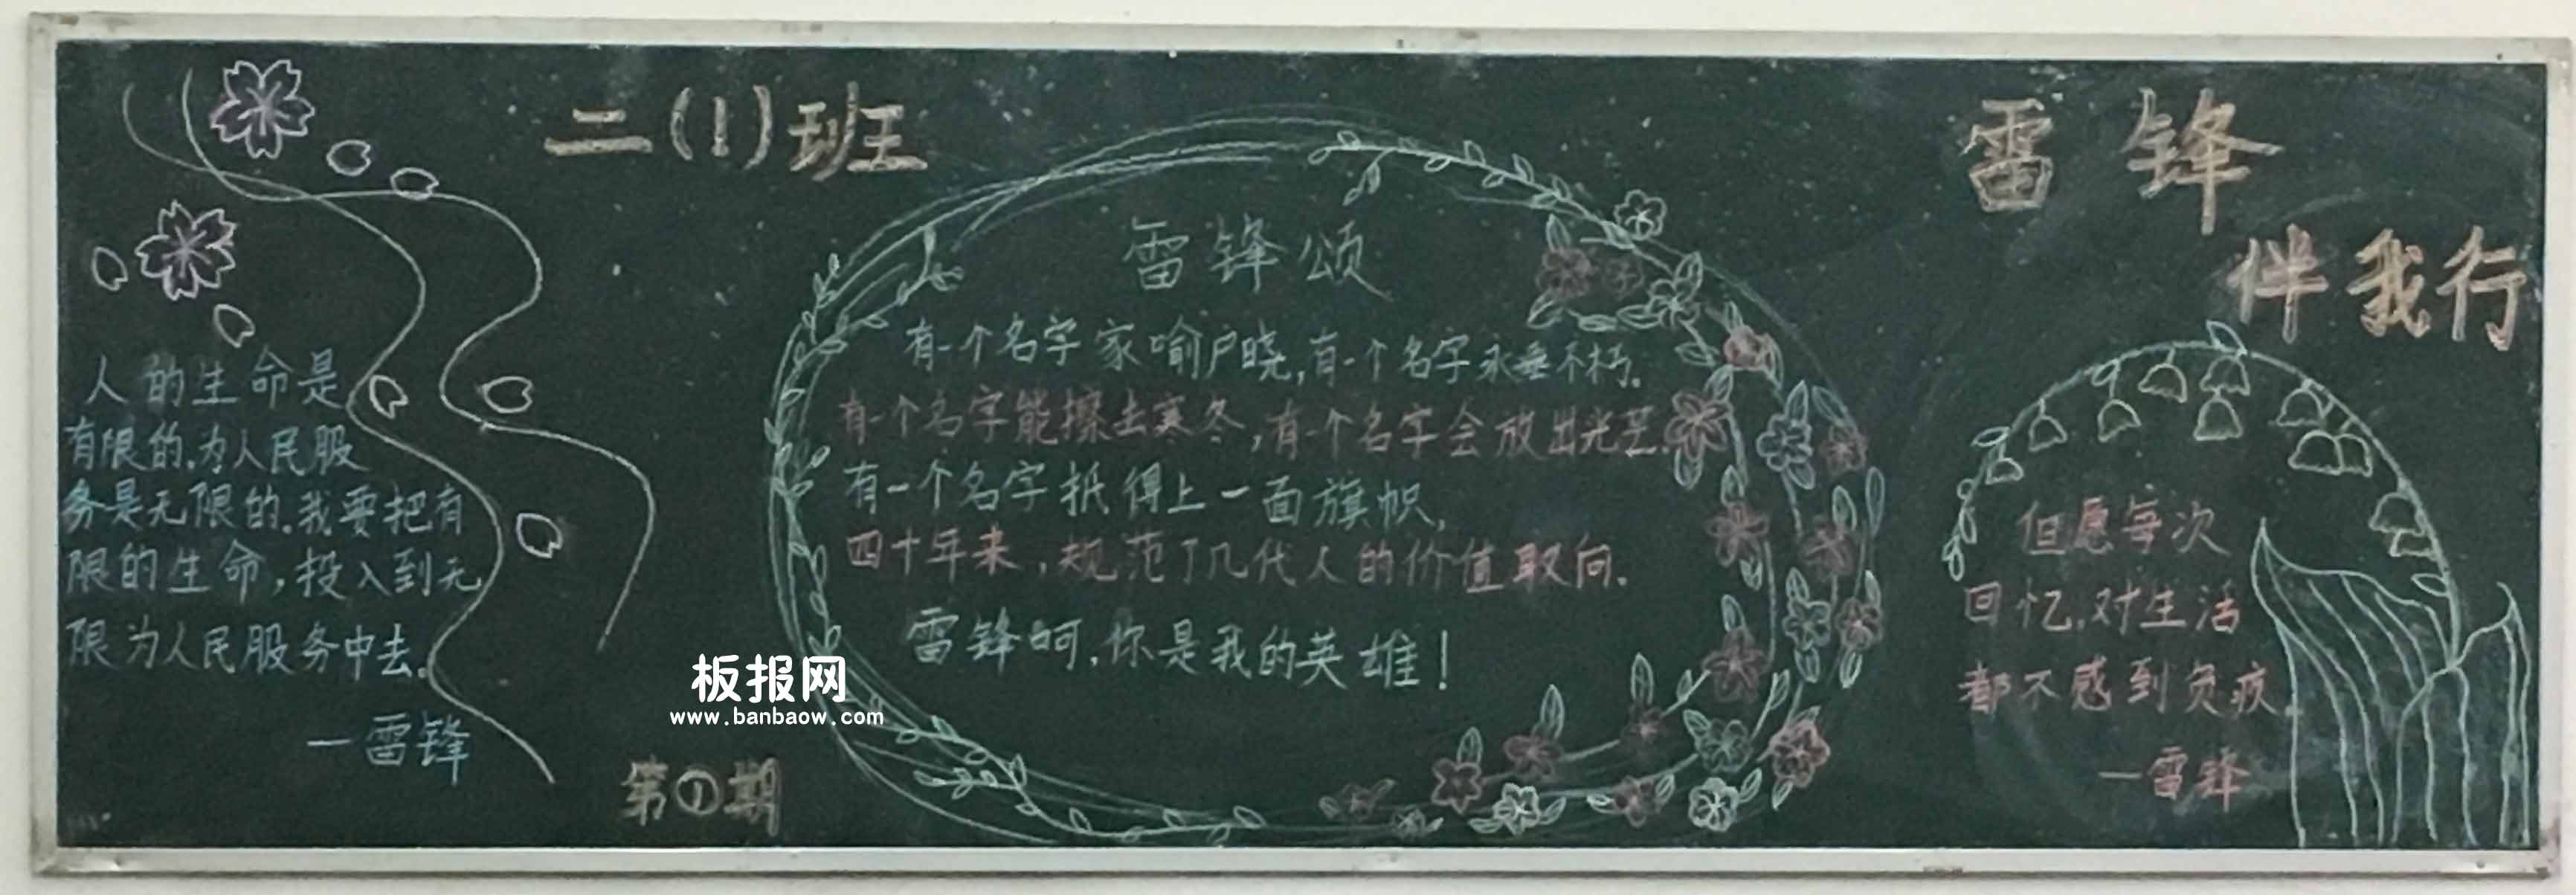 二(1)班
雷锋
伴我行
人的生命是
有限的.为人民服
务是无限的.我要把有
限的生命,投入到无
限为人民服务中去。
一雷锋
第①期
雷锋颂
有一个名字家喻户晓,有一个名字永垂不朽。
有一个名字能擦去寒冬,有一个名字会放出光芒.
有一个名字抵得上一面旗帜,
四十年来,规范了几代人的价值取向.
雷锋呵,你是我的英雄!
但愿每次
回忆,对生活
都不感到负疚.
一雷锋
板报网
www.banbaow.com